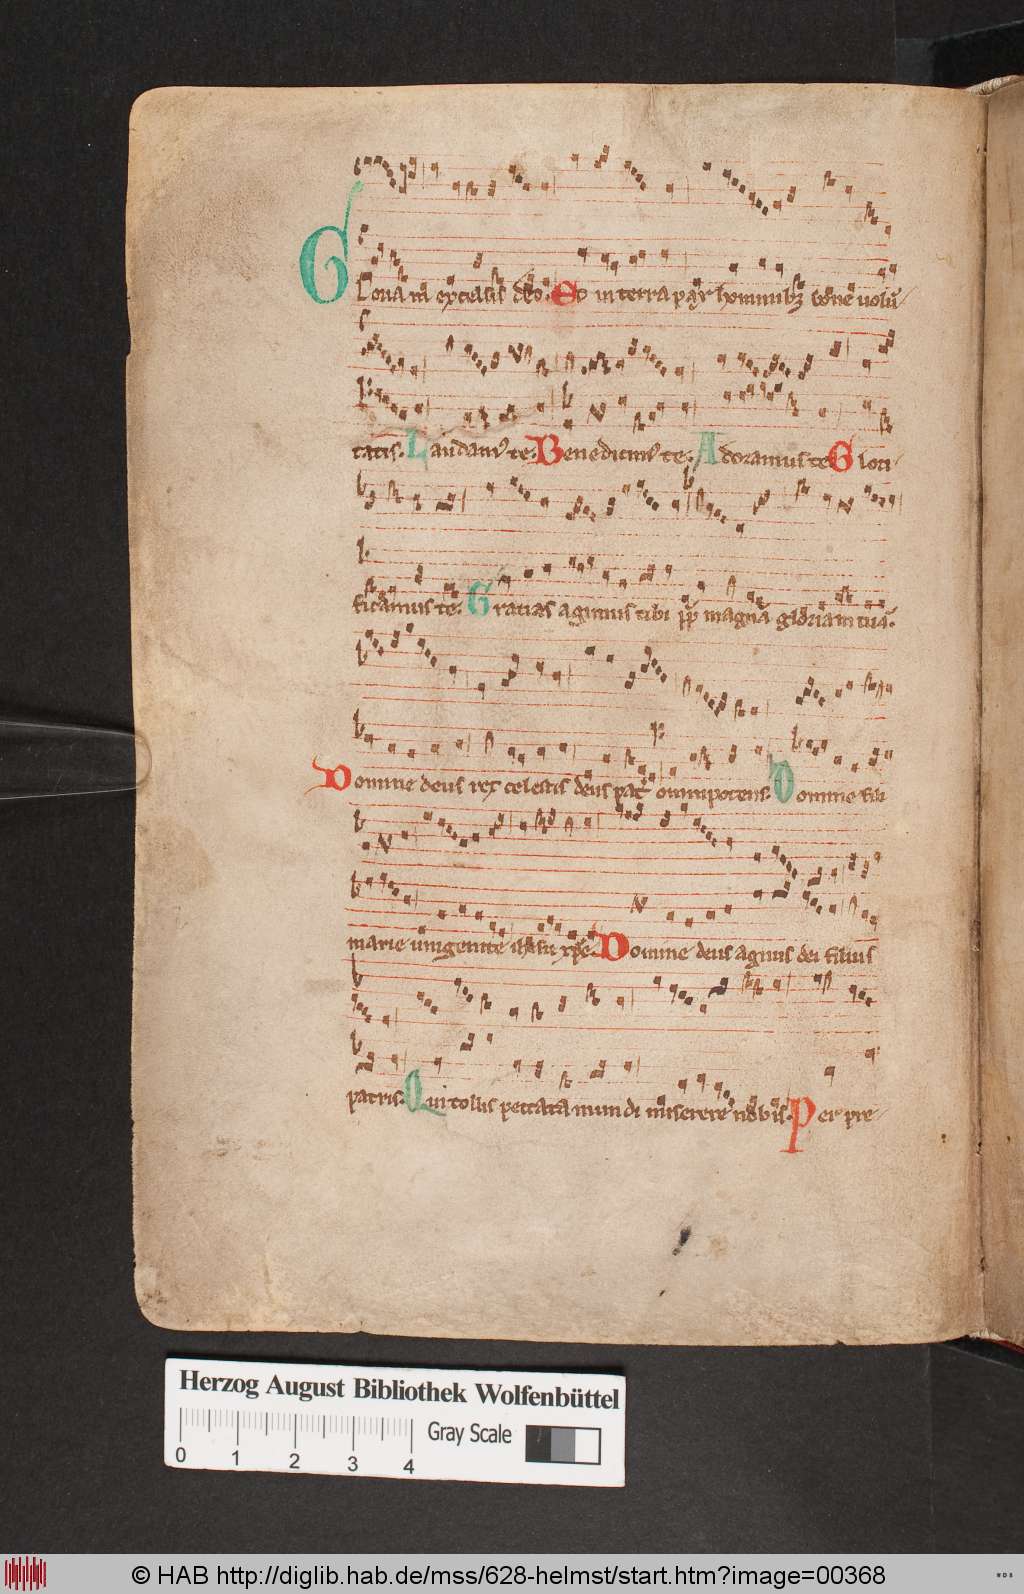 Gloria in excelsis deo. Et in terra pax hominibꝫ bone uolū-
tatis. Laudamꝰ te. Benedicimꝰ te. Adoramus te Glori-
ficamus te. Gratias agimus tibi ꝓpt̄ magnā gloriam tuā.
Domine deus rex celestis deus pat̄ omnipotens. Domine fili
marie unigenite ihesu xp̄e. Domine deus agnus dei filius
patris. Qui tollis peccata mundi miserere nobis. Per pre-
Herzog August Bibliothek Wolfenbüttel
Gray Scale
0 1 2 3 4
© HAB http://diglib.hab.de/mss/628-helmst/start.htm?image=00368